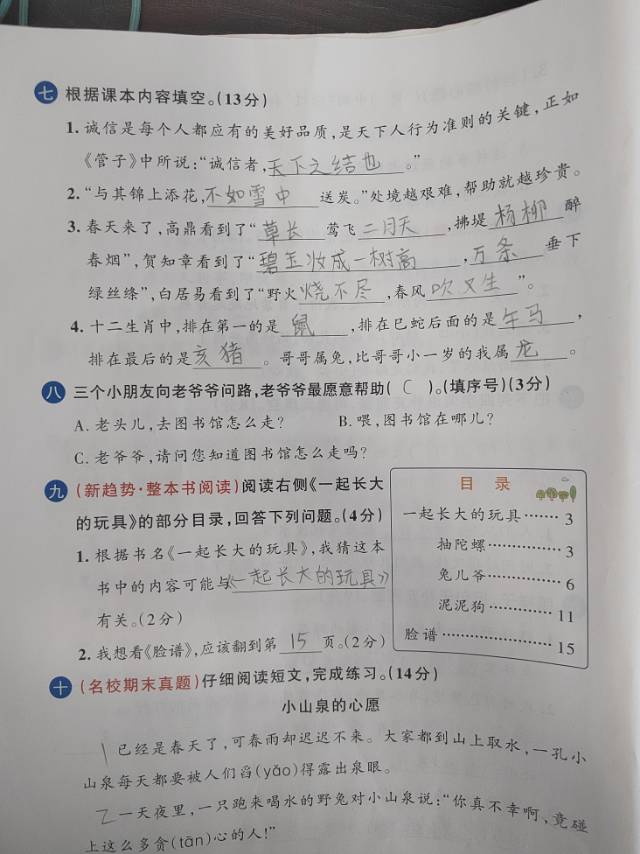 七 根据课本内容填空。(13分)
1. 诚信是每个人都应有的美好品质,是天下人行为准则的关键,正如
《管子》中所说:“诚信者,天下之结也。”
2. “与其锦上添花,不如雪中送炭。”处境越艰难,帮助就越珍贵。
3. 春天来了,高鼎看到了“草长莺飞二月天,拂堤杨柳醉
春烟”,贺知章看到了“碧玉妆成一树高,万条垂下
绿丝绦”,白居易看到了“野火烧不尽,春风吹又生”。
4. 十二生肖中,排在第一的是鼠,排在巳蛇后面的是午马,
排在最后的是亥猪。哥哥属兔,比哥哥小一岁的我属龙。
八 三个小朋友向老爷爷问路,老爷爷最愿意帮助( C )。(填序号)(3分)
A. 老头儿,去图书馆怎么走? B. 喂,图书馆在哪儿?
C. 老爷爷,请问您知道图书馆怎么走吗?
九 (新趋势·整本书阅读)阅读右侧《一起长大
的玩具》的部分目录,回答下列问题。(4分)
1. 根据书名《一起长大的玩具》,我猜这本
书中的内容可能与《一起长大的玩具》
有关。(2分)
2. 我想看《脸谱》,应该翻到第15页。(2分)
目 录
一起长大的玩具…… 3
抽陀螺…………… 3
兔儿爷…………… 6
泥泥狗…………… 11
脸谱…………………… 15
十 (名校期末真题)仔细阅读短文,完成练习。(14分)
小山泉的心愿
1 已经是春天了,可春雨却迟迟不来。大家都到山上取水,一孔小
山泉每天都要被人们舀(yǎo)得露出泉眼。
2 一天夜里,一只跑来喝水的野兔对小山泉说:“你真不幸啊,竟碰
上这么多贪(tān)心的人!”